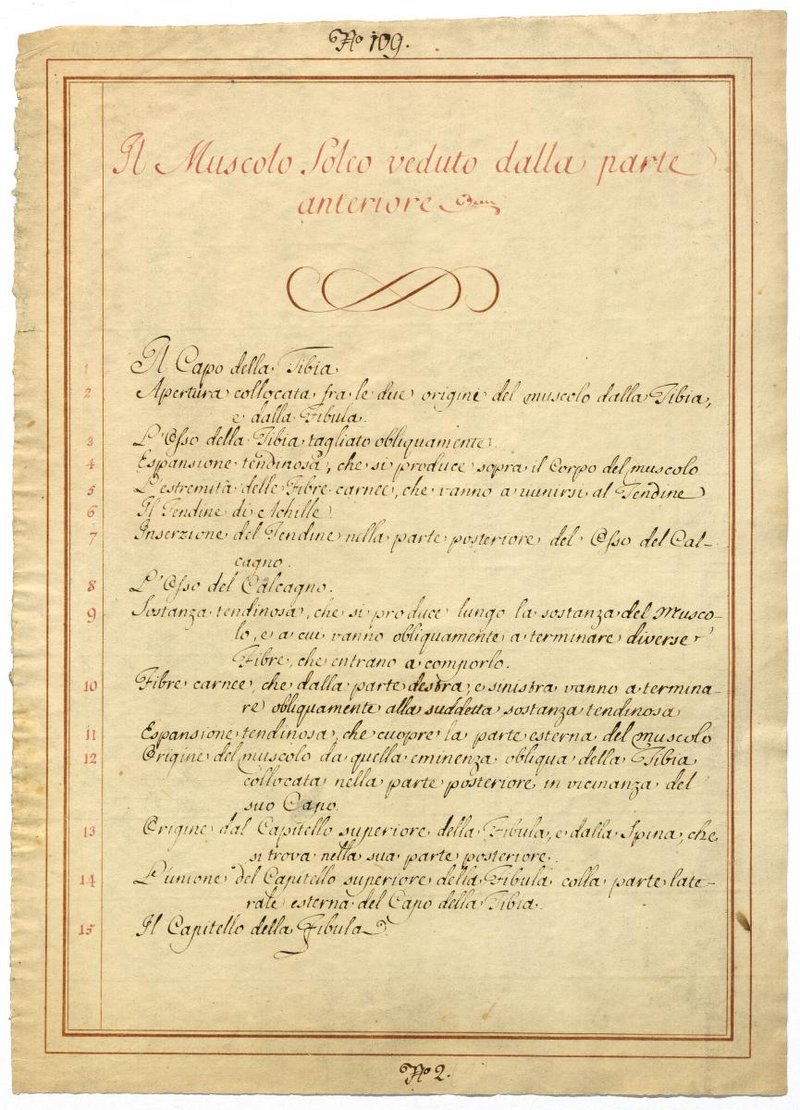 No 109.
Il Muscolo Soleo veduto dalla parte
anteriore
1 Il Capo della Tibia
2 Apertura collocata fra le due origini del muscolo dalla Tibia,
e dalla Fibula.
3 L'Osso della Tibia tagliato obliquamente.
4 Espansione tendinosa, che si produce sopra il Corpo del muscolo
5 L'estremità delle Fibre carnee, che vanno a uunirsi al Tendine
6 Il Tendine di Achille
7 Inserzione del Tendine nella parte posteriore del Osso del Cal-
cagno.
8 L'Osso del Calcagno.
9 Sostanza tendinosa, che si produce lungo la sostanza del Musco-
lo, e a cui vanno obliquamente a terminare diverse
Fibre, che entrano a comporlo.
10 Fibre carnee, che dalla parte destra, e sinistra vanno a termina-
re obliquamente alla suddetta sostanza tendinosa
11 Espansione tendinosa, che cuopre la parte esterna del muscolo
12 Origine del muscolo da quella eminenza obliqua della Tibia
collocata nella parte posteriore in vicinanza del
suo Capo.
13 Origine dal Capitello superiore della Fibula, e dalla Spina, che
si trova nella sua parte posteriore.
14 L'unione del Capitello superiore della Fibula colla parte late-
rale esterna del Capo della Tibia.
15 Il Capitello della Fibula
No 2.